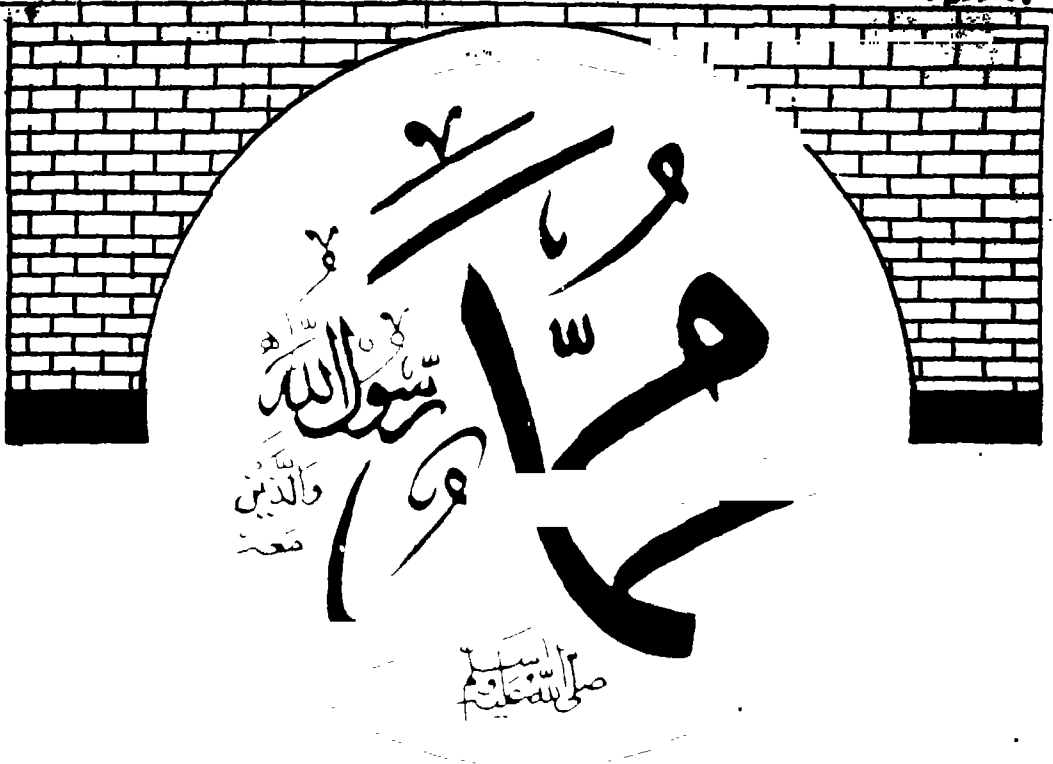 محمد
رَّسُولُ اللهِ
وَالَّذِيْنَ
مَعَهٗ
صلى الله عليه وسلم